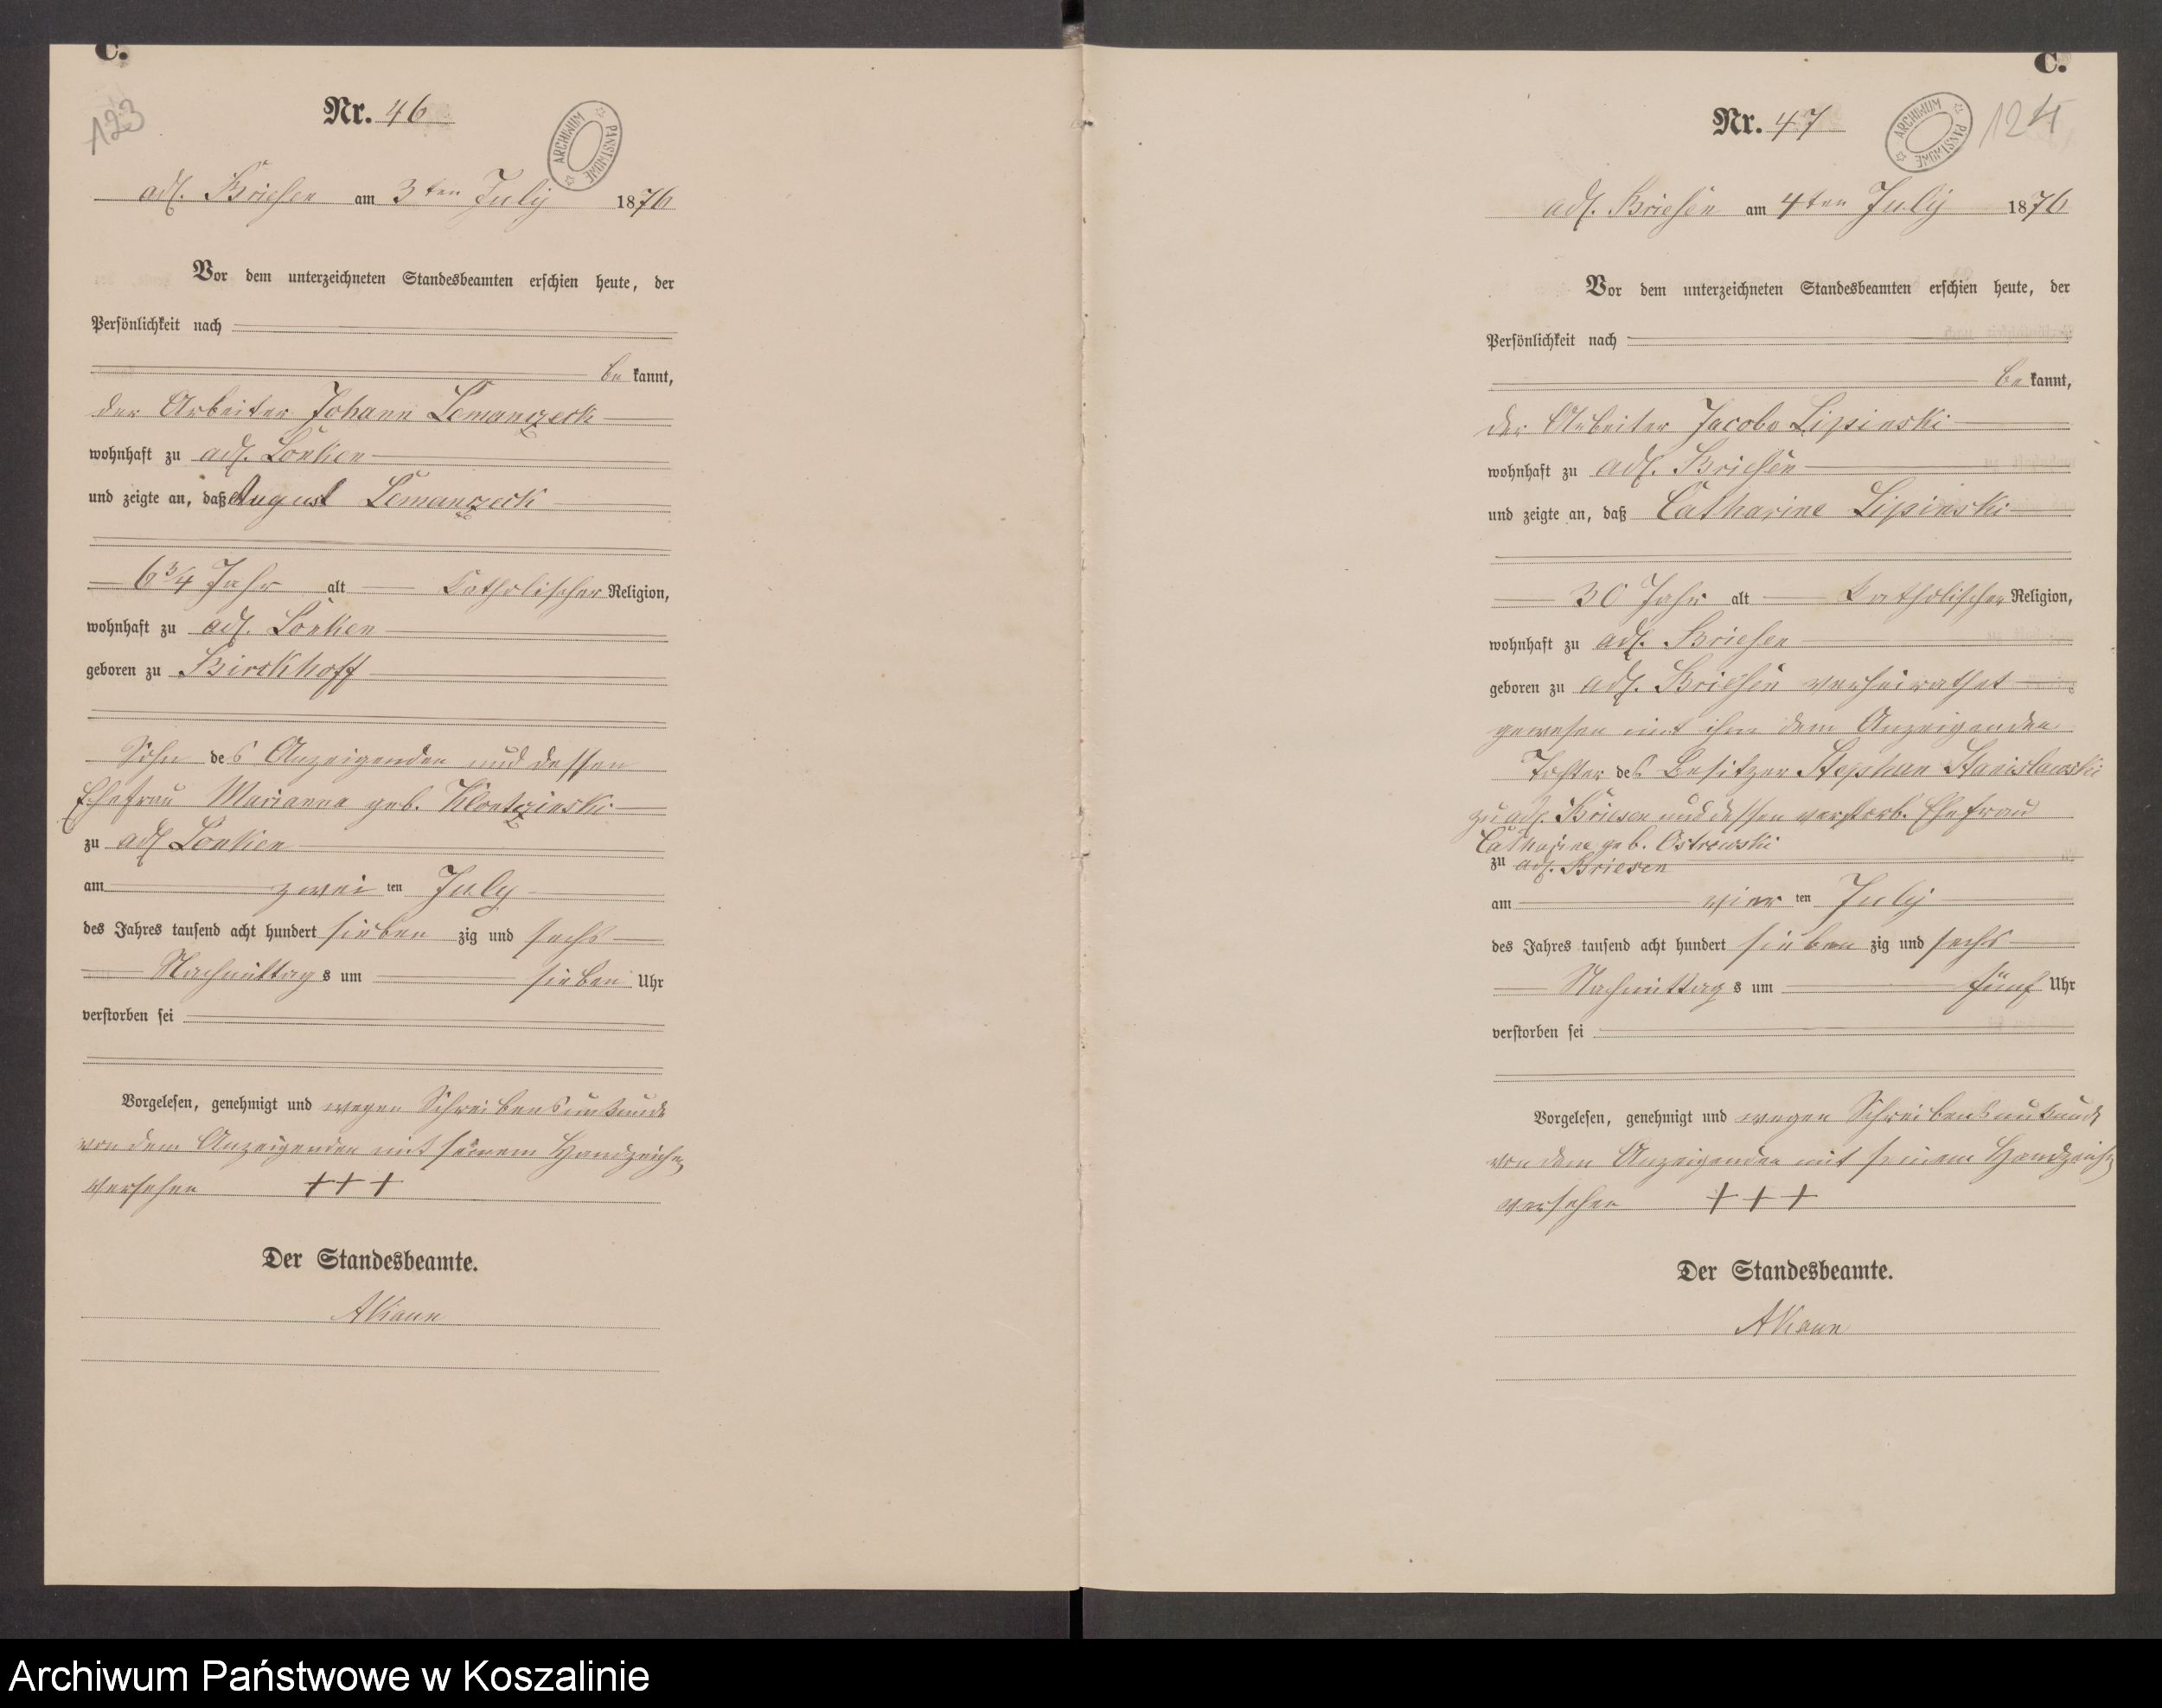 C.
123
Nr. 46
ARCHIWUM PAŃSTWOWE
adl. Briesen am 3ten July 1876
Vor dem unterzeichneten Standesbeamten erschien heute, der
Persönlichkeit nach
bekannt,
der Arbeiter Johann Lemanczeck
wohnhaft zu adl. Lonken
und zeigte an, daß August Lemanczeck
6 3/4 Jahr alt katholischer Religion,
wohnhaft zu adl. Lonken
geboren zu Birckhoff
Sohn des Anzeigenden und dessen
Ehefrau Marianna geb. Kloetzinski
zu adl Lonken
am zwei ten July
des Jahres tausend acht hundert sieben zig und sechs
Nachmittags um sieben Uhr
verstorben sei
Vorgelesen, genehmigt und wegen Schreibensunkunde
von dem Anzeigenden mit seinem Handzeichen
versehen +++
Der Standesbeamte.
AKaun
C.
124
Nr. 47
ARCHIWUM PAŃSTWOWE
adl. Briesen am 4ten July 1876
Vor dem unterzeichneten Standesbeamten erschien heute, der
Persönlichkeit nach
bekannt,
der Arbeiter Jacob Lipinski
wohnhaft zu adl. Briesen
und zeigte an, daß Catharine Lipinski
30 Jahr alt katholischer Religion,
wohnhaft zu adl. Briesen
geboren zu adl. Briesen verheirathet
gewesen mit ihm dem Anzeigenden
Tochter des Besitzer Stephan Stanislawski
zu adl. Briesen und dessen verstorb. Ehefrau
Catharine geb. Ostrowski
zu adl. Briesen
am vier ten July
des Jahres tausend acht hundert sieben zig und sechs
Nachmittags um fünf Uhr
verstorben sei
Vorgelesen, genehmigt und wegen Schreibensunkunde
von dem Anzeigenden mit seinem Handzeichen
versehen +++
Der Standesbeamte.
AKaun
Archiwum Państwowe w Koszalinie